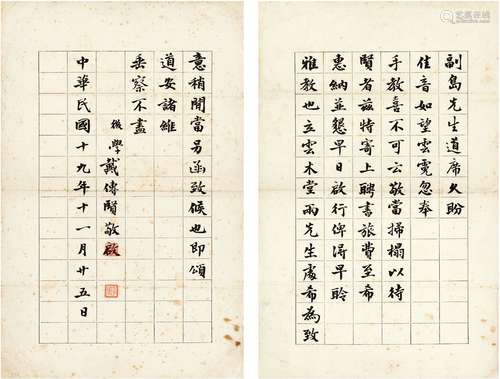 副島先生道席久盼
佳音如望雲霓忽奉
手教喜不可云敬當掃榻以待
賢者茲特寄上聘書旅費至希
惠納並懇早日啟行俾得早聆
雅教也立雲木堂兩先生處希為致
意稍閒當另函致候也即頌
道安諸維
垂察不盡
後學戴傳賢敬啟
中華民國十九年十一月廿五日